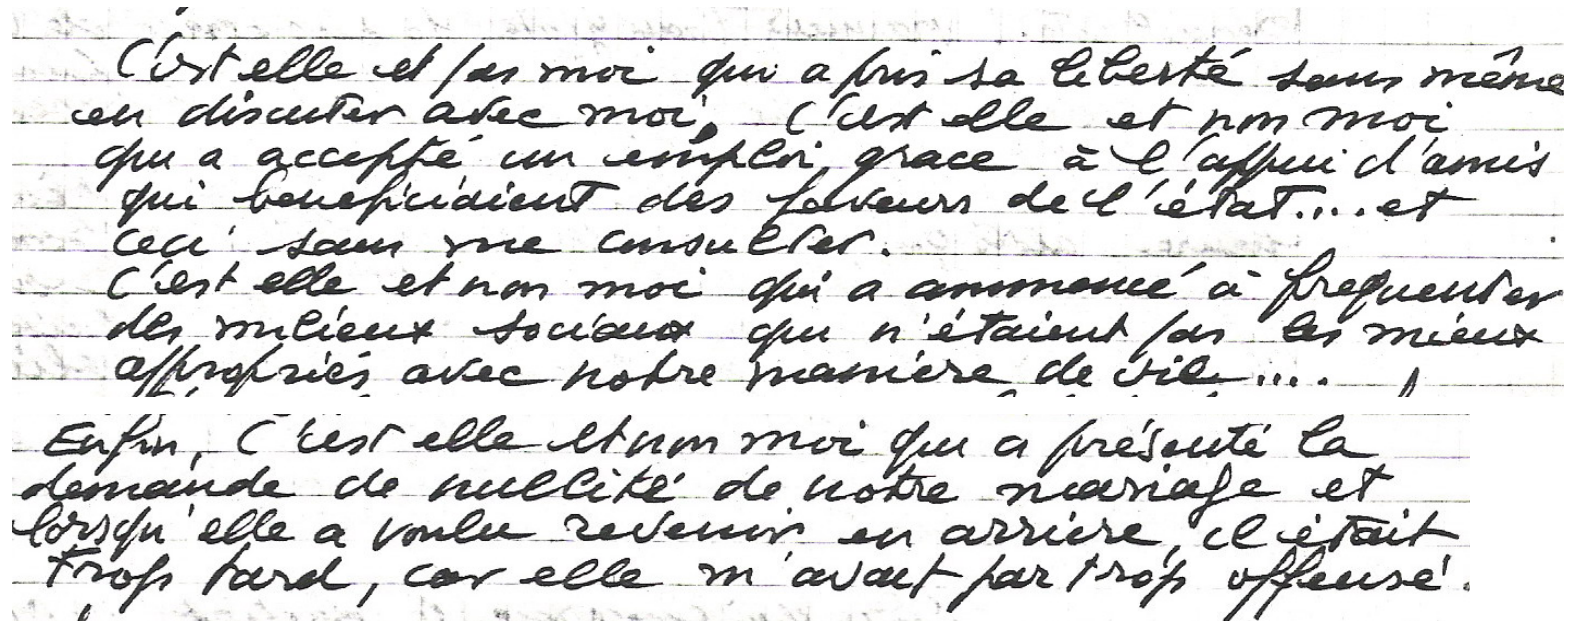 C'est elle et pas moi qui a pris sa liberté sans même
en discuter avec moi. C'est elle et non moi
qui a accepté un emploi grace à l'appui d'amis
qui beneficiaient des faveurs de l'état.... et
ceci sans me consulter.
C'est elle et non moi qui a commencé à frequenter
des milieux sociaux qui n'étaient pas les mieux
appropriés avec notre manière de vie....
Enfin, C'est elle et non moi qui a présenté la
demande de nullité de notre mariage et
lorsqu'elle a voulu revenir en arrière, il était
trop tard, car elle m'avait par trop offensé.